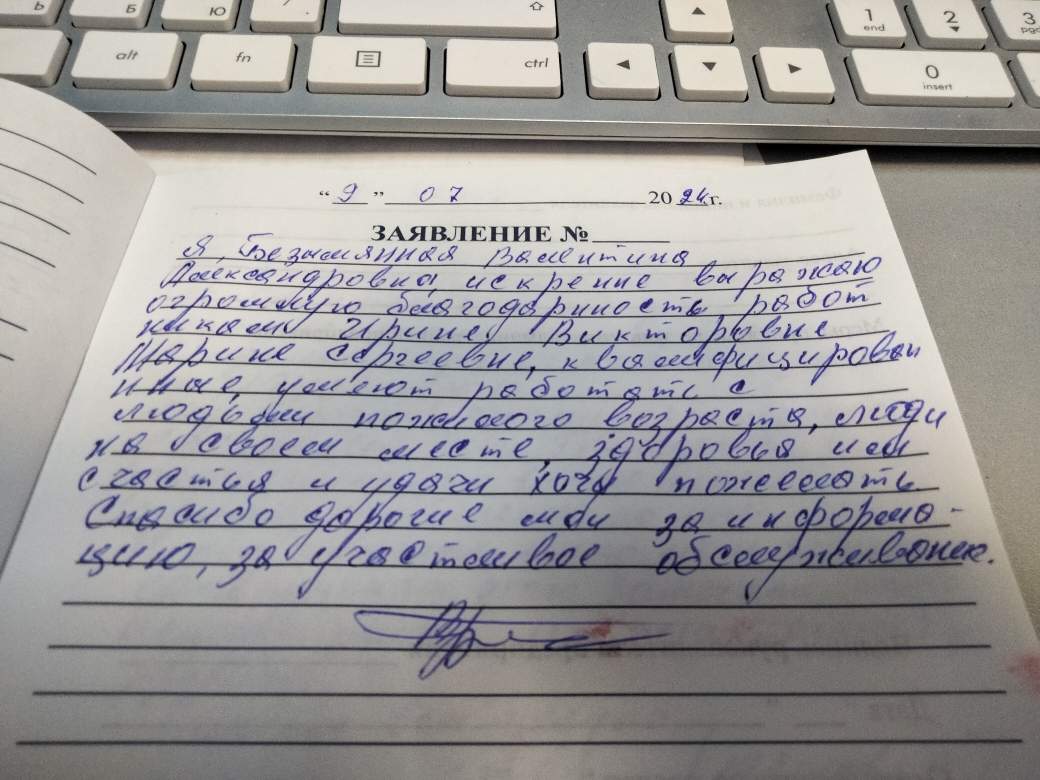 Ь Б Ю / . ⇧ ▲ 1 end 2 ▼ 3
alt fn ctrl ◄ ▼ ► 0 insert
“ 9 ” 07 2024г.
ЗАЯВЛЕНИЕ №
Я, Безымянная Валентина
Александровна, искренне выражаю
огромную благодарность работ
никам Ирине Викторовне
Марине Сергеевне, квалифицирован
ные, умеют работать с
людьми пожилого возраста, люди
на своем месте, здоровья им
счастья и удачи хочу пожелать
Спасибо дорогие мои за информа-
цию, за участливое обслуживание.